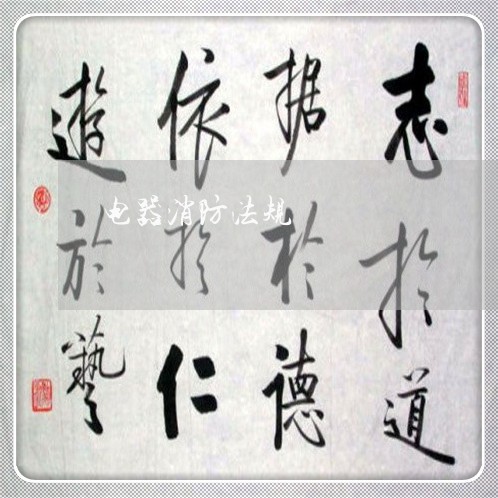 志於道
据於德
依於仁
遊於藝
电器消防法规